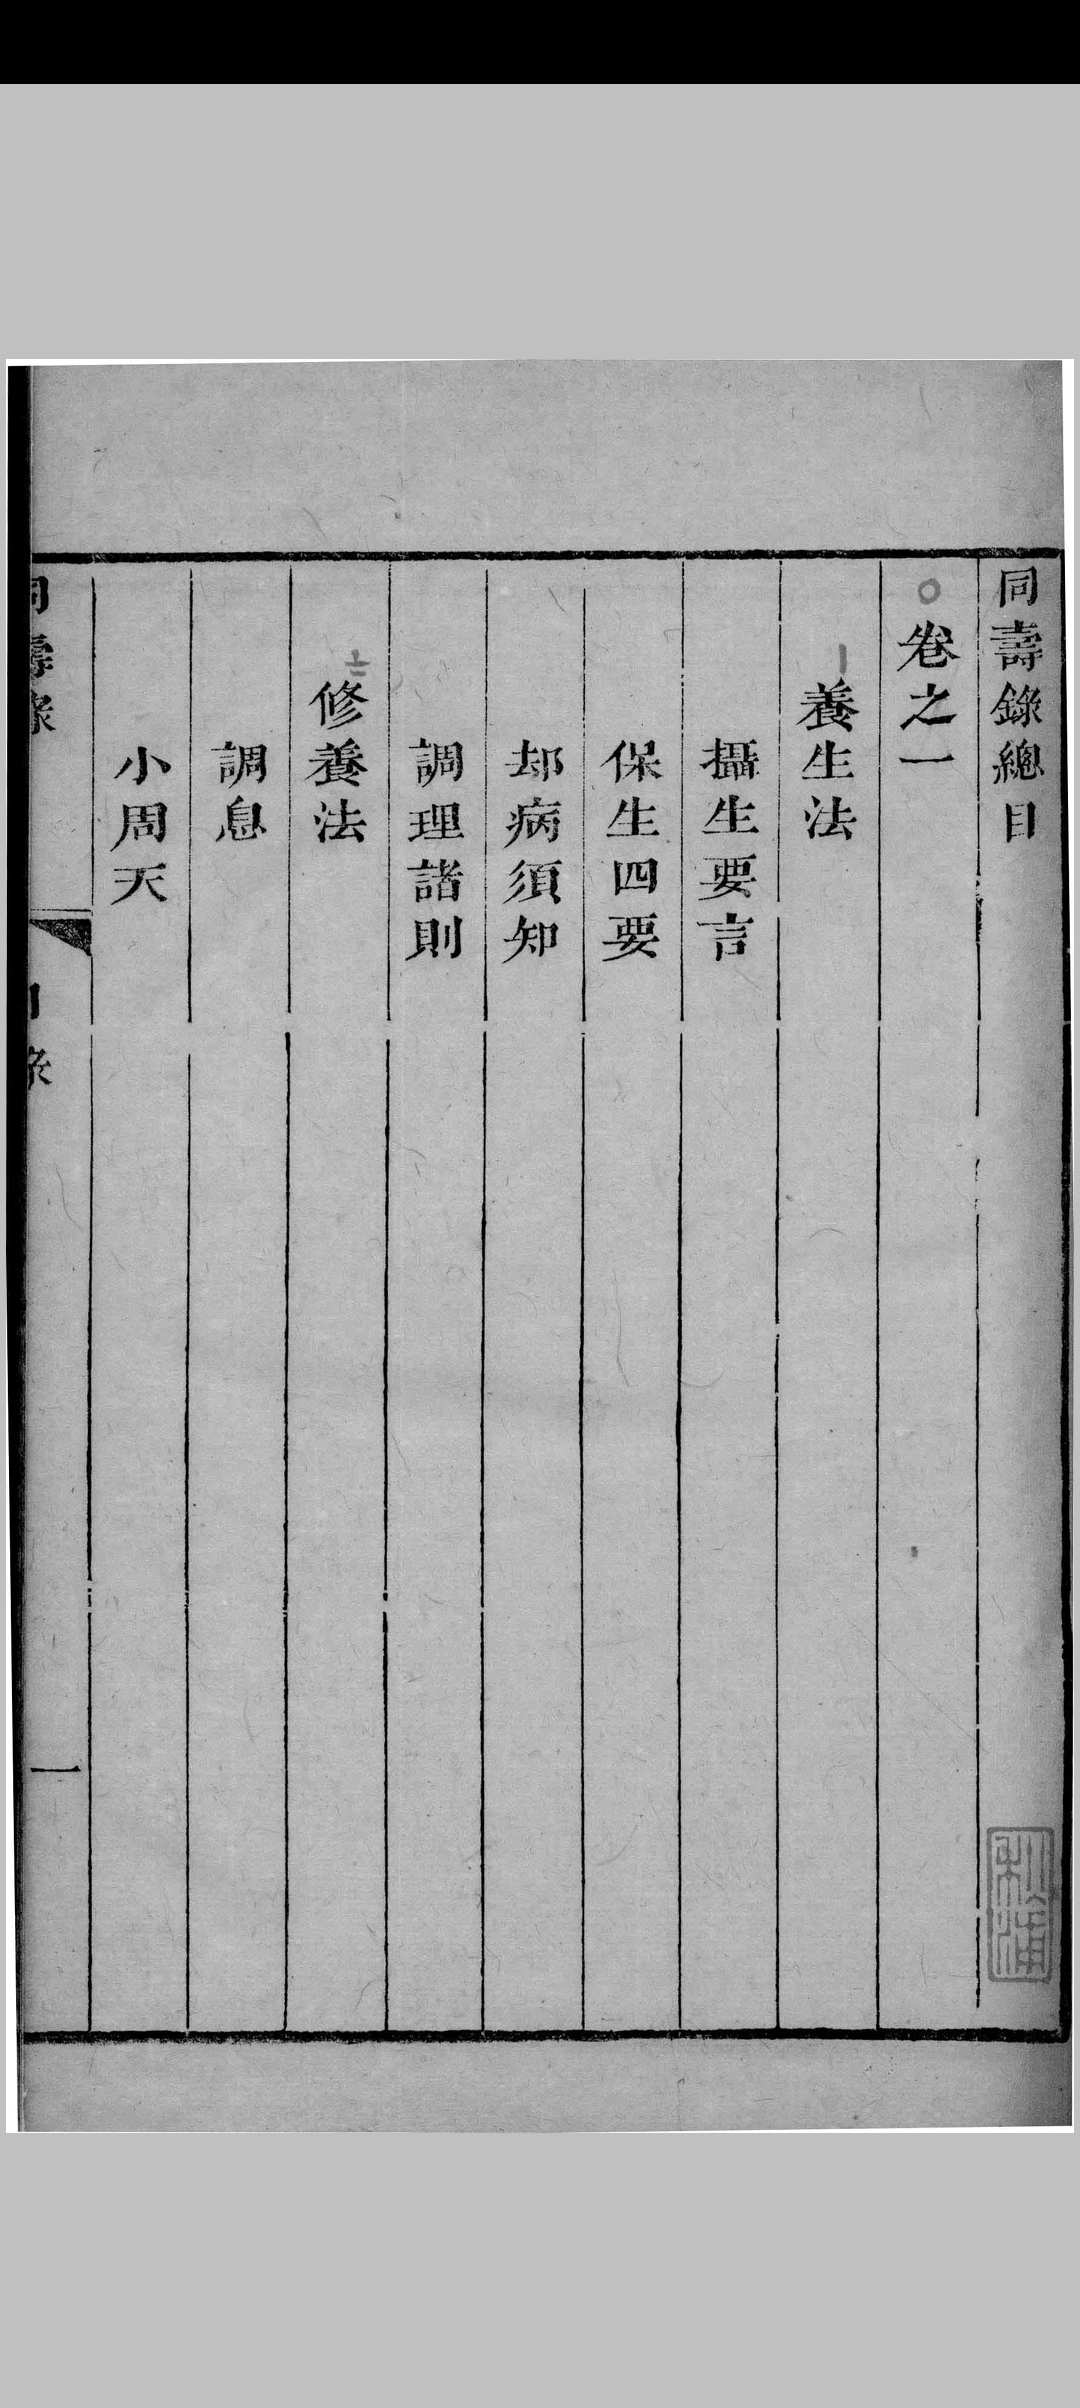 同壽錄總目
卷之一
養生法
攝生要言
保生四要
却病須知
調理諸則
修養法
調息
小周天
同壽錄
目錄
一